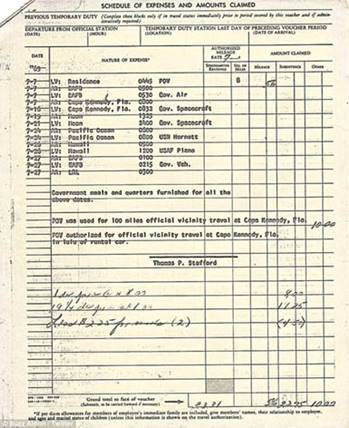 SCHEDULE OF EXPENSES AND AMOUNTS CLAIMED
PREVIOUS TEMPORARY DUTY (Complete these blocks only if in travel status immediately prior to period covered by this voucher and if administratively required)
DEPARTURE FROM OFFICIAL STATION
(DATE) (HOUR)
TEMPORARY DUTY STATION LAST DAY OF PRECEDING VOUCHER PERIOD
(LOCATION) (DATE OF ARRIVAL)
DATE
NATURE OF EXPENSE*
AUTHORIZED MILEAGE RATE
AMOUNT CLAIMED
MILEAGE SUBSISTENCE OTHER
7-7 LV: Residence 0445 POV 8
7-7 AR: EAFB 0500
7-7 LV: EAFB 0530 Gov. Air
7-7 AR: Cape Kennedy, Fla. 0800
7-16 LV: Cape Kennedy, Fla. 0832 Gov. Spacecraft
7-19 AR: Moon 1325
7-21 LV: Moon 2400 Gov. Spacecraft
7-24 AR: Pacific Ocean 0500
7-24 LV: Pacific Ocean 0500 USN Hornet
7-26 AR: Hawaii 0500
7-26 LV: Hawaii 1200 USAF Plane
7-27 AR: EAFB 0100
7-27 LV: EAFB 0215 Gov. Veh.
7-27 AR: 0300
Government meals and quarters furnished for all the
above dates.
POV was used for 100 miles official vicinity travel at Cape Kennedy, Fla. 10.00
POV authorized for official vicinity travel at Cape Kennedy, Fla.
in lelu of rental car.
Thomas P. Stafford
8.00
(2)
Grand total to face of voucher 33.31 10.00
(Subtotals, to be carried forward if necessary)
*If per diem allowances for members of employee's immediate family are included, give members' names, their relationship to employee, and ages and marital status of children (unless this information is shown on the travel authorization).
© Buzz Aldrin / Twitter